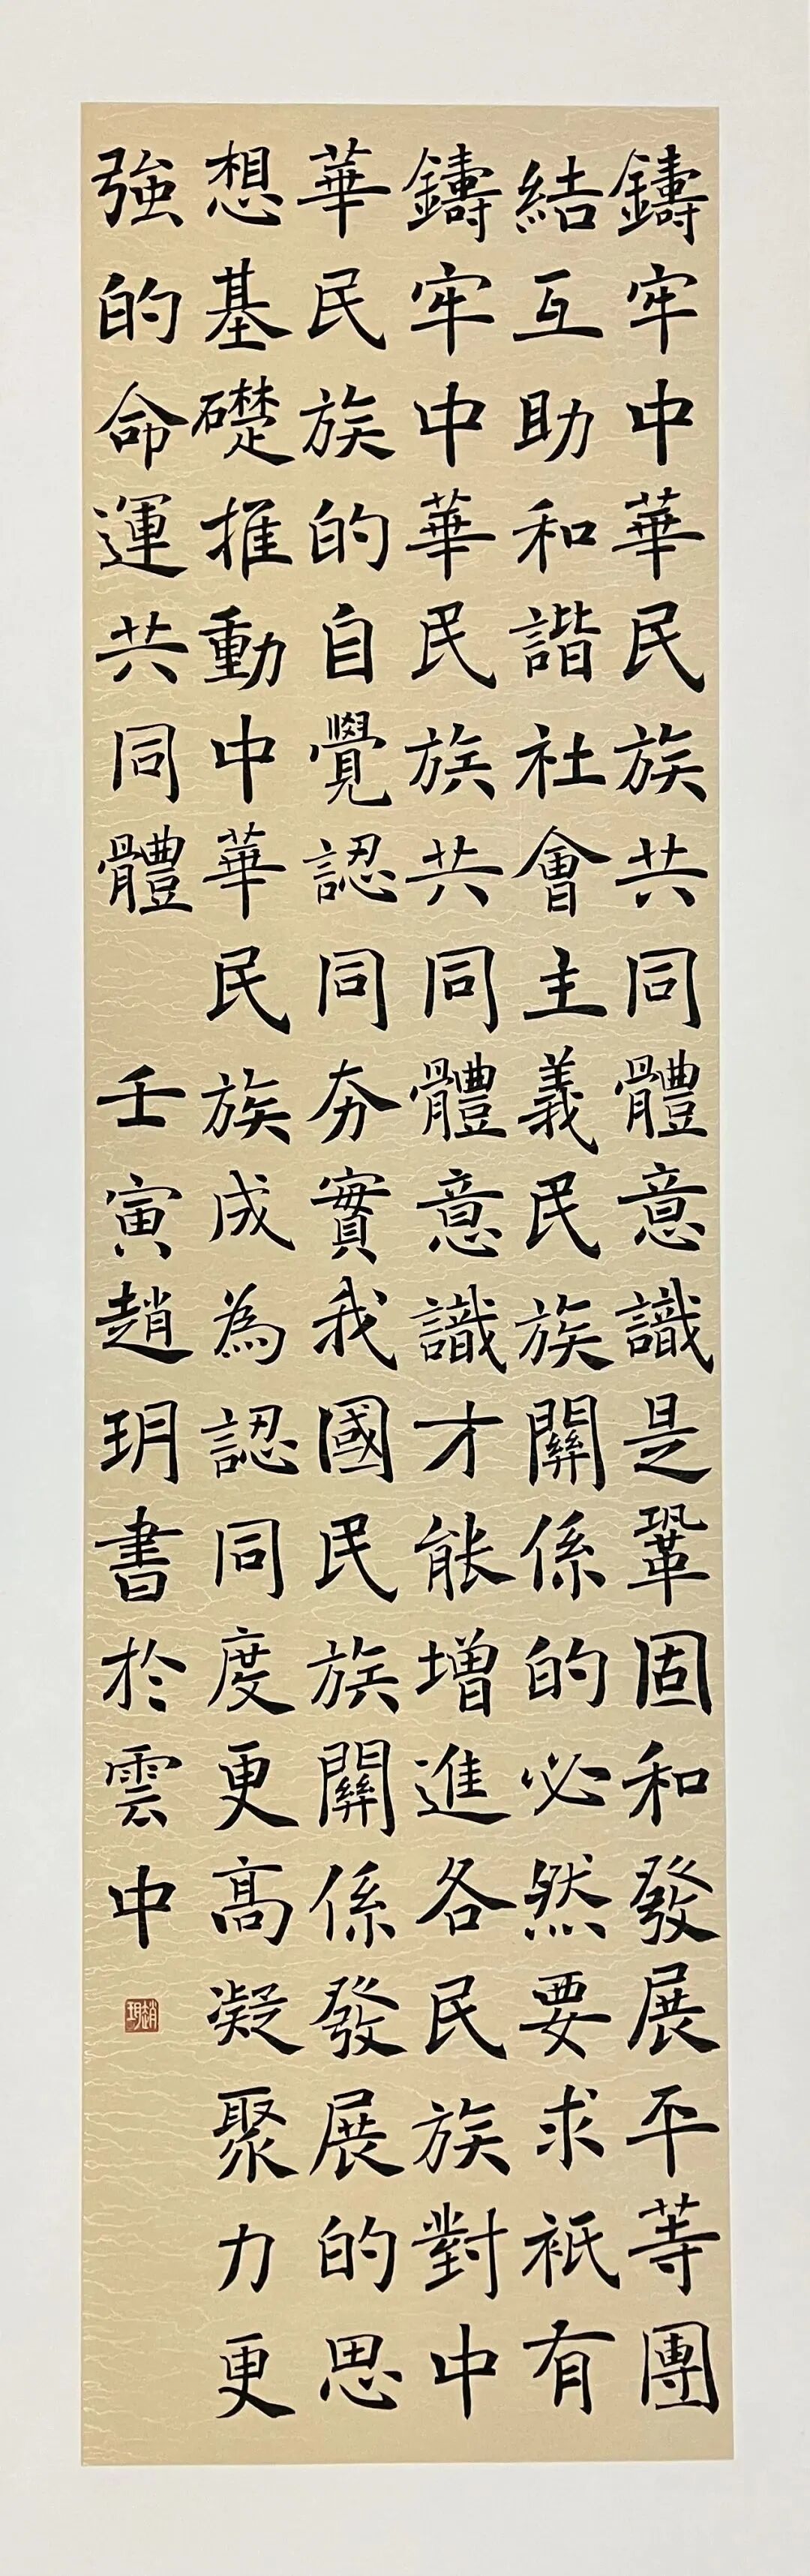 鑄牢中華民族共同體意識是鞏固和發展平等團
結互助和諧社會主義民族關係的必然要求祇有
鑄牢中華民族共同體意識才能增進各民族對中
華民族的自覺認同夯實我國民族關係發展的思
想基礎推動中華民族成為認同度更高凝聚力更
強的命運共同體 壬寅趙玥書於雲中
趙玥